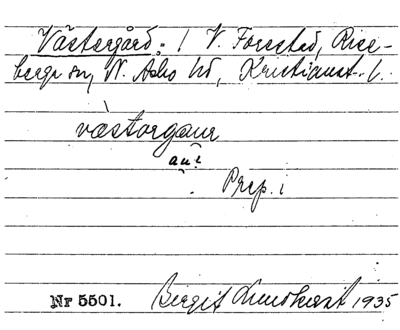 Västergård: / V. Forestad, Rise-
berga sn, N. Åsbo hd, Kristianst. l.
västorgaur
au̯e
Prep. i
Nr 5501. Birgit Lundkvist 1935